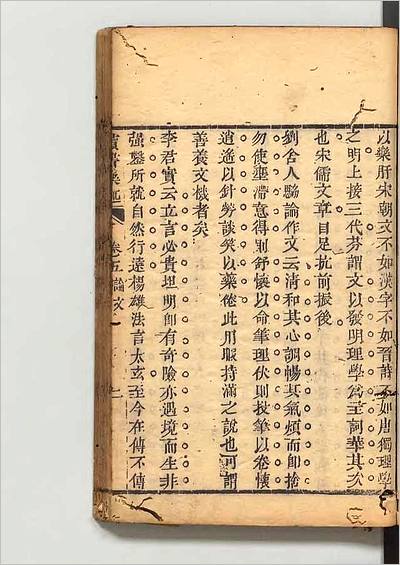 以藥肝宋朝文不如漢字不如晉詩不如唐獨理學
之明上接三代芬謂文以發明理學爲主詞華其次
也宋儒文章自足抗前振後
劉舍人勰論作文云淸和其心調暢其氣煩而即捨
勿使壅滯意得則舒懷以命筆理伏則投筆以卷懷
逍遙以針勞談笑以藥倦此用持滿之說也可謂
善養文機者矣
李君實云立言必貴坦明卽有奇險亦遇境而生非
强鑿所就自然行遠楊雄法言太玄至今在傳不傳
卷五論文